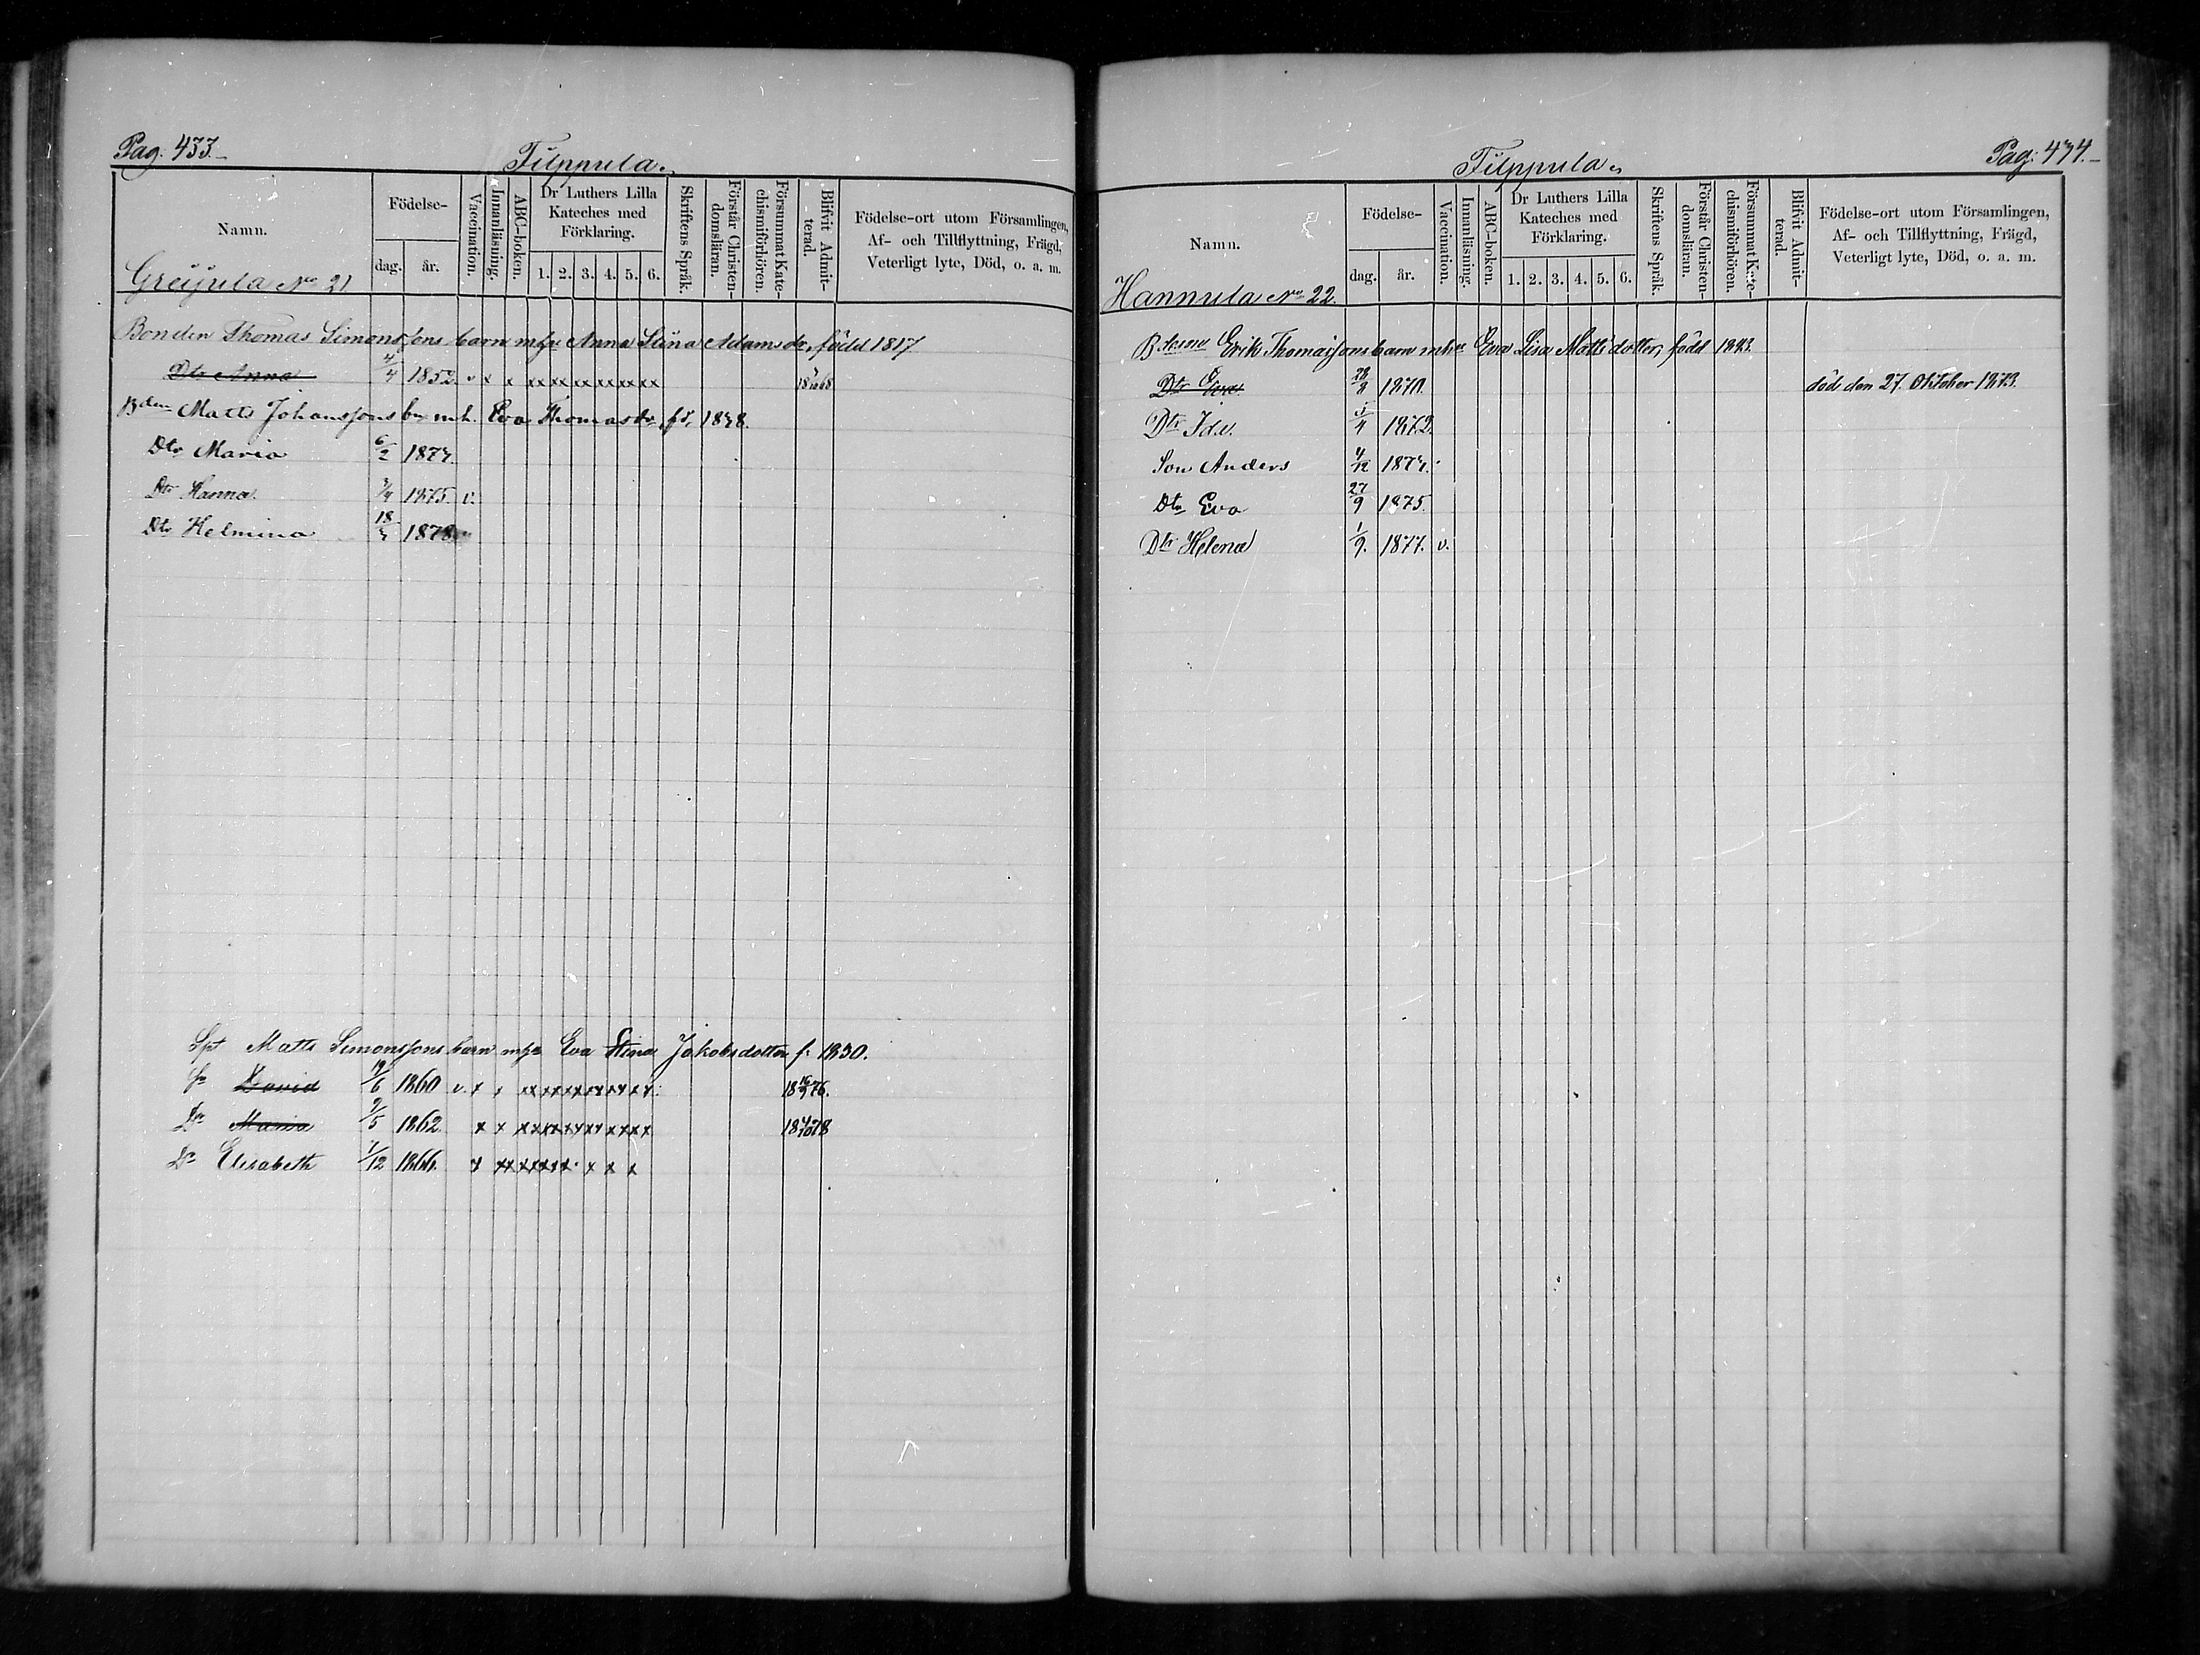 Pag. 433.
Filppula.
Namn.
Födelse-
dag.
år.
Vaccination.
Innanläsning.
ABC-boken.
Dr Luthers Lilla
Kateches med
Förklaring.
1. 2. 3. 4. 5. 6.
Skriftens Språk.
Förstår Christen-
domsläran.
Försummat Kate-
chismiförhören.
Blifvit Admit-
terad.
Födelse-ort utom Församlingen,
Af- och Tillflyttning, Frägd,
Veterligt lyte, Död, o. a. m.
Greijula No 21
Bonden Thomas Simonssons barn mh Anna Stina Adamsdr, född 1817
Dtr Anna 4/4 1852 v x x xx xx xx xx xx xx 68
Bden Matts Johanssons bn mh. Eva Thomasdr, fd. 1838.
Dtr Maria 6/2 1874.
Dtr Hanna 3/4 1875. v.
Dtr Helmina 18 1878
Spt Matts Simonssons barn mh Eva Stina Jakobsdotter f. 1830.
Sn David 19/6 1860 v. x x xx xx xx xx xx xx 18 16/9 76.
Dr Maria 9/5 1862 x x xx xx xx xx xx xx 18 78
Dr Elisabeth 1/12 1866. x xx xx xx xx x x x
Pag: 434.
Filppula
Namn.
Födelse-
dag.
år.
Vaccination.
Innanläsning.
ABC-boken.
Dr Luthers Lilla
Kateches med
Förklaring.
1. 2. 3. 4. 5. 6.
Skriftens Språk.
Förstår Christen-
domsläran.
Försummat Kate-
chismiförhören.
Blifvit Admit-
terad.
Födelse-ort utom Församlingen,
Af- och Tillflyttning, Frägd,
Veterligt lyte, Död, o. a. m.
Hannula No 22.
Erik Thomassons barn mh Eva Lisa Mattsdotter, född 1843.
Dtr Eva 28/8 1870. död den 27. Oktober 1873.
Dtr Ida 1872.
Son Anders 4/12 1874.
Dtr Eva 27/9 1875.
Dtr Helena 1/9. 1877. v.